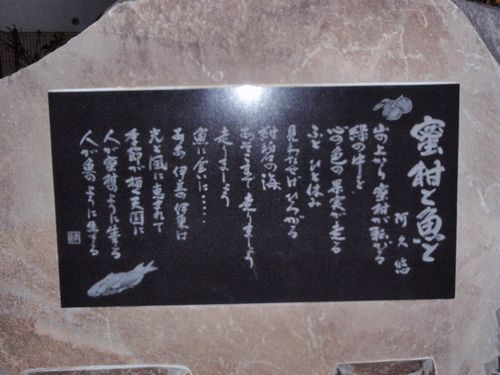 蜜柑と魚と
阿久悠
山の上から 蜜柑が転げる
緑の中を
色の果実が走る
ふと ひと休み
見わたせば ひろがる
紺碧の海
あそこまで 走りましょう
走りましょう
魚に会いに……
ああ 伊豆の伊東は
光と風に恵まれて
季節が 天国に
人が蜜柑のように生きる
人が魚のように生きる